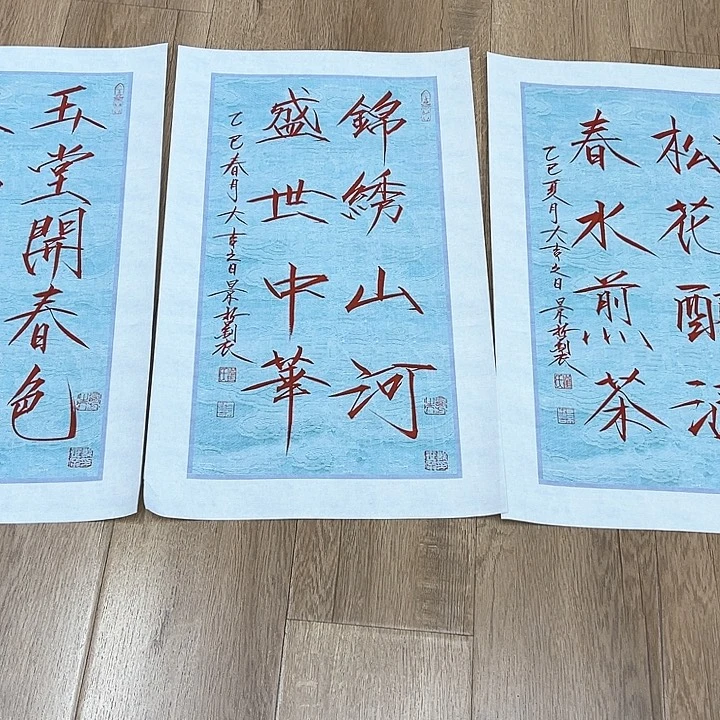 玉堂開春色
錦綉山河
盛世中華
乙巳春月大吉之日景
松花釀酒
春水煎茶
乙巳夏月大吉之日景